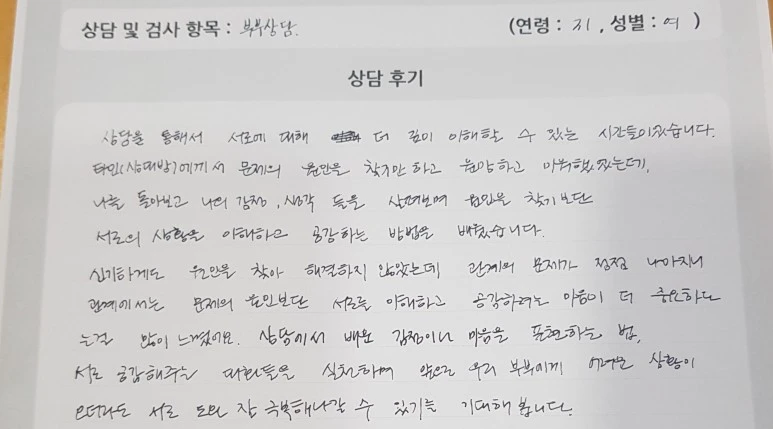 상담 및 검사 항목 : 부부상담. (연령 : 31, 성별 : 여 )
상담 후기
상담을 통해서 서로에 대해 더 깊이 이해할 수 있는 시간들이었습니다.
타인(상대방)에게서 문제의 원인을 찾기만 하고 원망하고 미워했었는데,
나를 돌아보고 나의 감정, 생각 들을 살펴보며 원인을 찾기보단
서로의 상황을 이해하고 공감하는 방법을 배웠습니다.
신기하게도 원인을 찾아 해결하지 않았는데 관계의 문제가 점점 나아지니
관계에서는 문제의 원인보단 서로를 이해하고 공감하려는 마음이 더 중요하다
는걸 많이 느꼈어요. 상담에서 배운 감정이나 마음을 표현하는 법,
서로 공감해주는 대화들을 실천하며 앞으로 우리 부부에게 어려운 상황이
오더라도 서로 도와 잘 극복해나갈 수 있기를 기대해 봅니다.